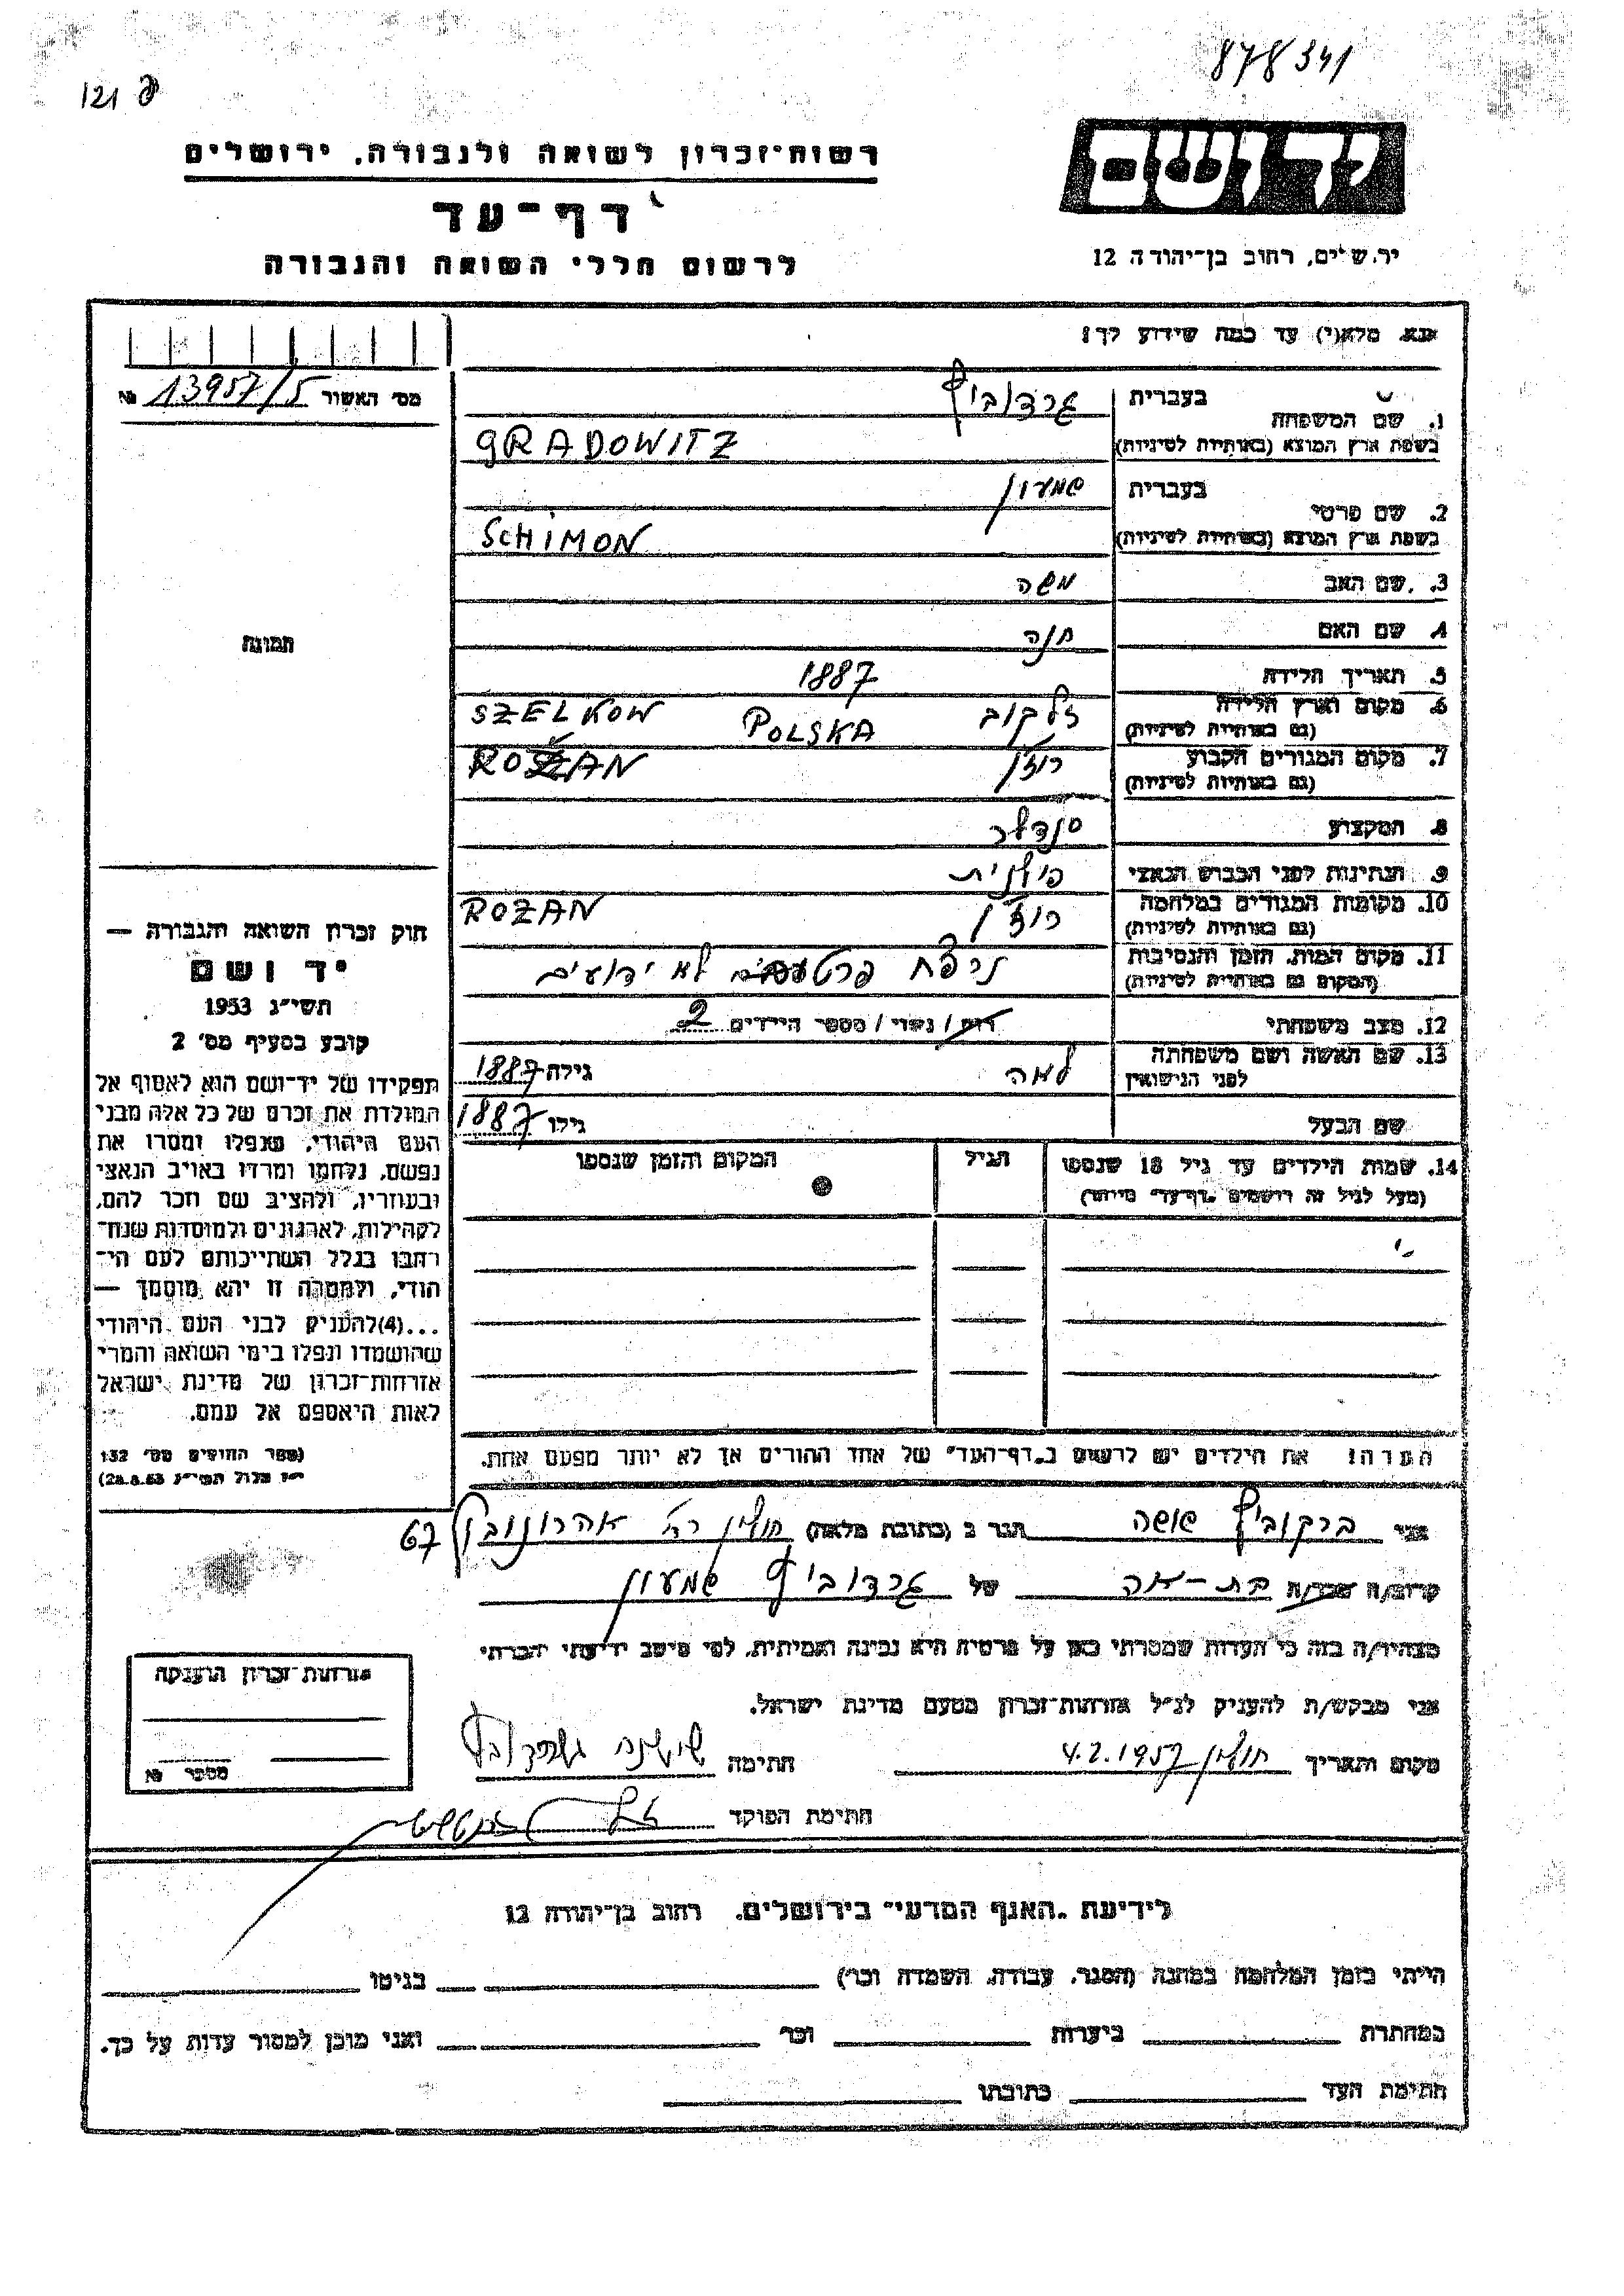 878341
121 פ
רשות־זכרון לשואה ולגבורה, ירושלים
דף־עד
לרשום חללי השואה והגבורה
יד ושם
יר.ש׳ים, רחוב בן־יהודה 12
אנא מלא(י) עד כמה שידוע לך!
מס׳ האשור 13957/5 №
1. שם המשפחה
בעברית גרדוביץ
בשפת ארץ המוצא (באותיות לטיניות) GRADOWITZ
2. שם פרטי
בעברית שמעון
בשפת ארץ המוצא (באותיות לטיניות) SCHIMON
3. שם האב משה
4. שם האם חנה
5. תאריך הלידה 1887
6. מקום וארץ הלידה
(גם באותיות לטיניות) זלקוב POLSKA SZELKOW
7. מקום המגורים הקבוע
(גם באותיות לטיניות) רוז׳ן ROŻAN
8. המקצוע סנדלר
9. הנתינות לפני הכבוש הנאצי פולנית
10. מקומות המגורים במלחמה
(גם באותיות לטיניות) רוז׳ן ROZAN
11. מקום המות, הזמן והנסיבות
(המקום גם באותיות לטיניות) נרצח פרטים לא ידועים
12. מצב משפחתי רווק / נשוי / מספר הילדים 2
13. שם האשה ושם משפחתה
לפני הנישואין לאה גילה 1887
שם הבעל גילו 1887
14. שמות הילדים עד גיל 18 שנספו
(מעל לגיל זה רושמים "דף־עד" מיוחד)
הגיל
המקום והזמן שנספו
הערה! את הילדים יש לרשום ב„דף־העד״ של אחד ההורים אך לא יותר מפעם אחת.
תמונה
חוק זכרון השואה והגבורה —
יד ושם
תשי״ג 1953
קובע בסעיף מס׳ 2
תפקידו של יד־ושם הוא לאסוף אל
המולדת את זכרם של כל אלה מבני
העם היהודי, שנפלו ומסרו את
נפשם, נלחמו ומרדו באויב הנאצי
ובעוזריו, ולהציב שם וזכר להם,
לקהילות, לארגונים ולמוסדות שנח־
רבו בגלל השתייכותם לעם הי־
הודי, ולמטרה זו יהא מוסמך —
...(4)להעניק לבני העם היהודי
שהושמדו ונפלו בימי השואה והמרי
אזרחות־זכרון של מדינת ישראל
לאות היאספם אל עמם.
(ספר החוקים מס׳ 132
י״ז אלול תשי״ג 28.8.53)
אני ברקוביץ שושה הגר ב (כתובת מלאה) חולון רח׳ אהרונוביץ 67
קרוב/ה מכר/ה בת-אח של גרדוביץ שמעון
מצהיר/ה בזה כי העדות שמסרתי כאן על פרטיה היא נכונה ואמיתית, לפי מיטב ידיעתי והכרתי
אני מבקש/ת להעניק לנ״ל אזרחות־זכרון מטעם מדינת ישראל.
מקום ותאריך חולון 4.2.1957 חתימה
חתימת הפוקד
אזרחות־זכרון הוענקה
מספר №
לידיעת „האגף המדעי״ בירושלים, רחוב בן־יהודה 12
הייתי בזמן המלחמה במחנה (הסגר, עבודה, השמדה וכו׳) בגיטו
במחתרת ביערות וכו׳ ואני מוכן למסור עדות על כך.
חתימת העד כתובתו